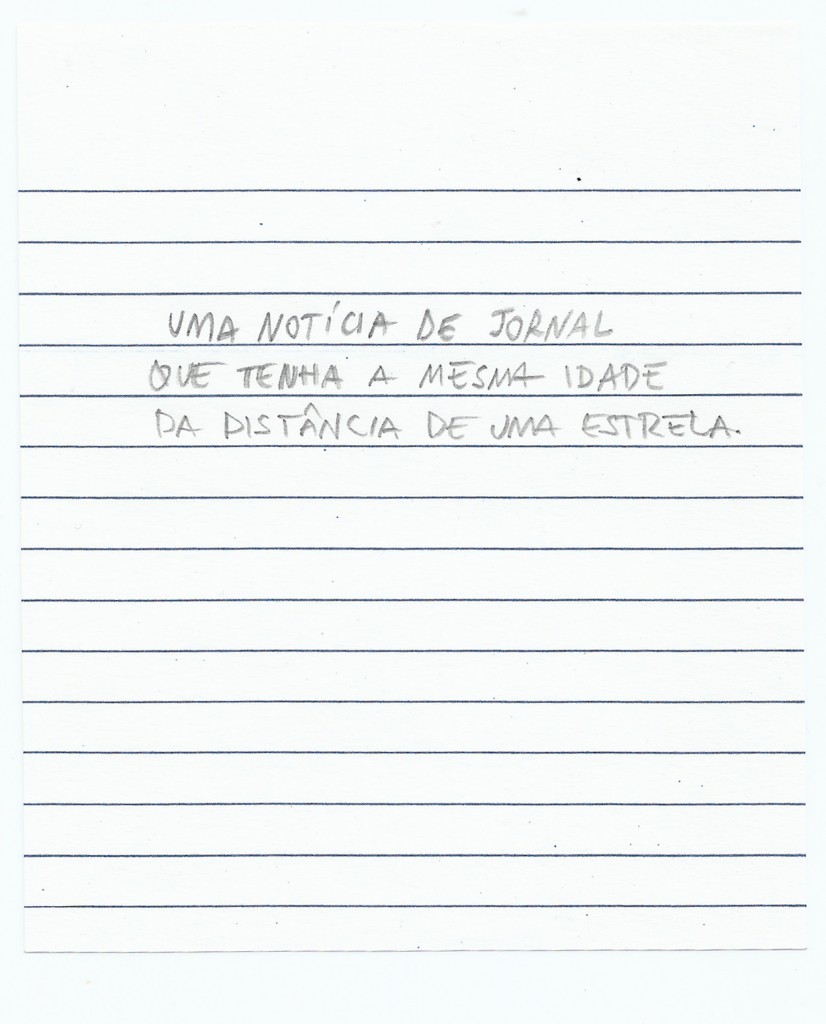 UMA NOTÍCIA DE JORNAL
QUE TENHA A MESMA IDADE
DA DISTÂNCIA DE UMA ESTRELA.